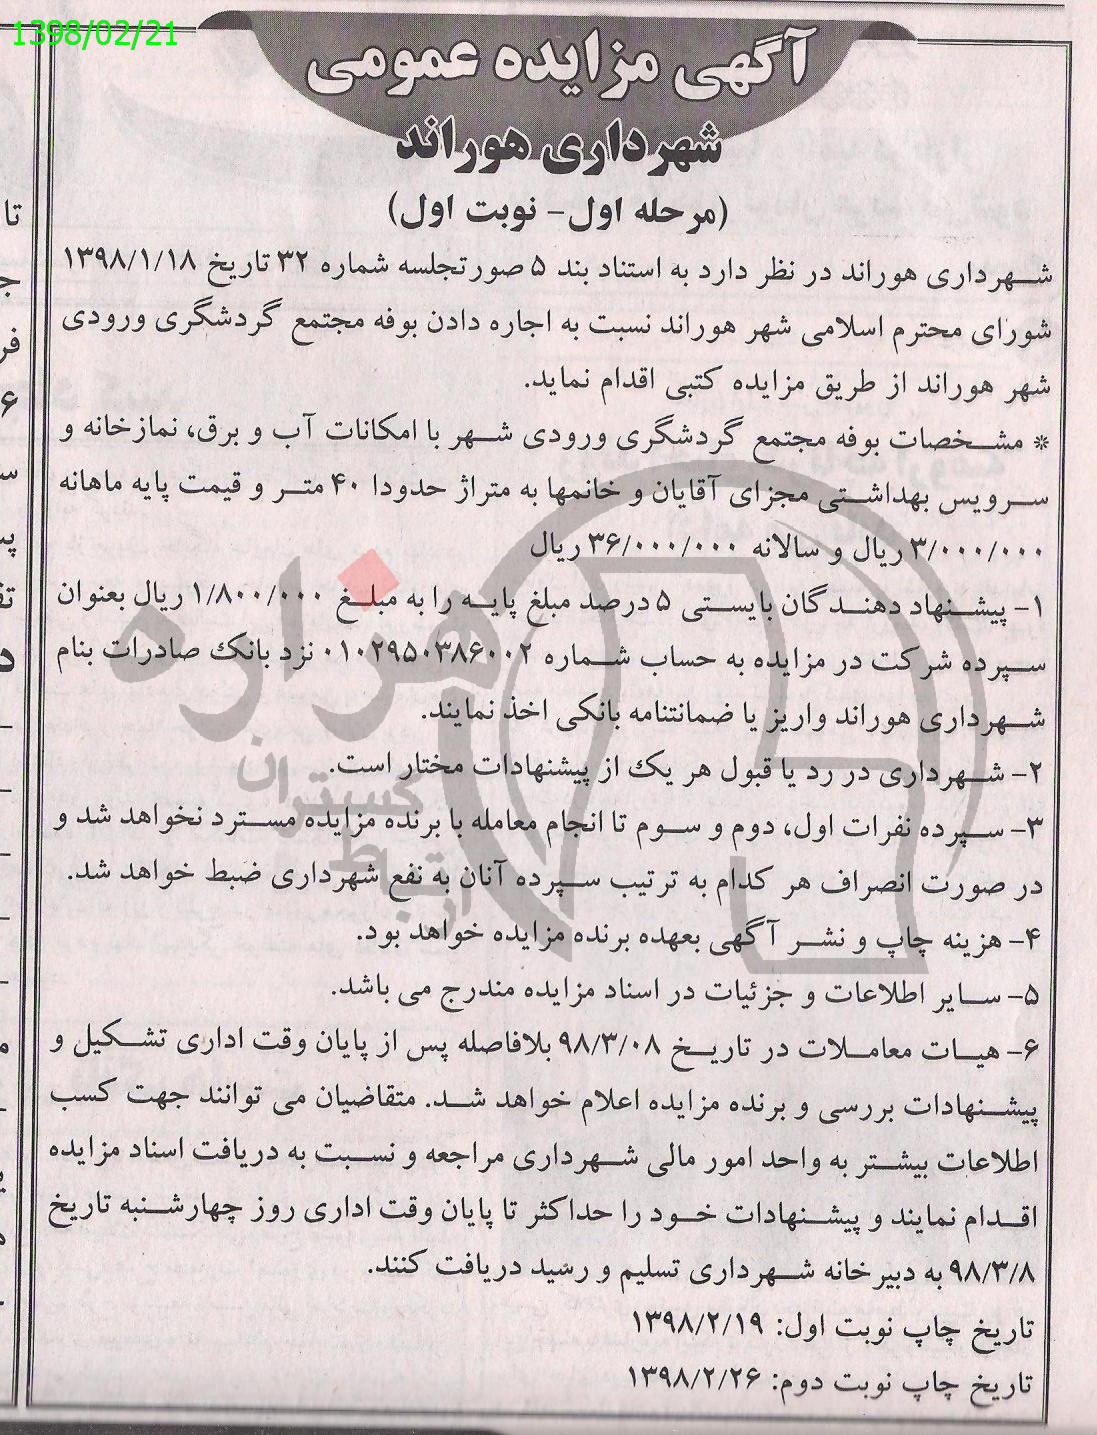 1398/02/21
آگهی مزایده عمومی
شهرداری هوراند
(مرحله اول- نوبت اول)
شهرداری هوراند در نظر دارد به استناد بند ۵ صورتجلسه شماره ۳۲ تاریخ ۱۳۹۸/۱/۱۸
شورای محترم اسلامی شهر هوراند نسبت به اجاره دادن بوفه مجتمع گردشگری ورودی
شهر هوراند از طریق مزایده کتبی اقدام نماید.
* مشخصات بوفه مجتمع گردشگری ورودی شهر با امکانات آب و برق، نمازخانه و
سرویس بهداشتی مجزای آقایان و خانمها به متراژ حدودا ۴۰ متر و قیمت پایه ماهانه
۳/۰۰۰/۰۰۰ ریال و سالانه ۳۶/۰۰۰/۰۰۰ ریال
۱- پیشنهاد دهندگان بایستی ۵ درصد مبلغ پایه را به مبلغ ۱/۸۰۰/۰۰۰ ریال بعنوان
سپرده شرکت در مزایده به حساب شماره ۰۱۰۲۹۵۰۳۸۶۰۰۲ نزد بانک صادرات بنام
شهرداری هوراند واریز یا ضمانتنامه بانکی اخذ نمایند.
۲- شهرداری در رد یا قبول هر یک از پیشنهادات مختار است.
۳- سپرده نفرات اول، دوم و سوم تا انجام معامله با برنده مزایده مسترد نخواهد شد و
در صورت انصراف هر کدام به ترتیب سپرده آنان به نفع شهرداری ضبط خواهد شد.
۴- هزینه چاپ و نشر آگهی بعهده برنده مزایده خواهد بود.
۵- سایر اطلاعات و جزئیات در اسناد مزایده مندرج می باشد.
۶- هیات معاملات در تاریخ ۹۸/۳/۰۸ بلافاصله پس از پایان وقت اداری تشکیل و
پیشنهادات بررسی و برنده مزایده اعلام خواهد شد. متقاضیان می توانند جهت کسب
اطلاعات بیشتر به واحد امور مالی شهرداری مراجعه و نسبت به دریافت اسناد مزایده
اقدام نمایند و پیشنهادات خود را حداکثر تا پایان وقت اداری روز چهارشنبه تاریخ
۹۸/۳/۸ به دبیرخانه شهرداری تسلیم و رسید دریافت کنند.
تاریخ چاپ نوبت اول: ۱۳۹۸/۲/۱۹
تاریخ چاپ نوبت دوم: ۱۳۹۸/۲/۲۶
هزاره
گستران
ارتباط